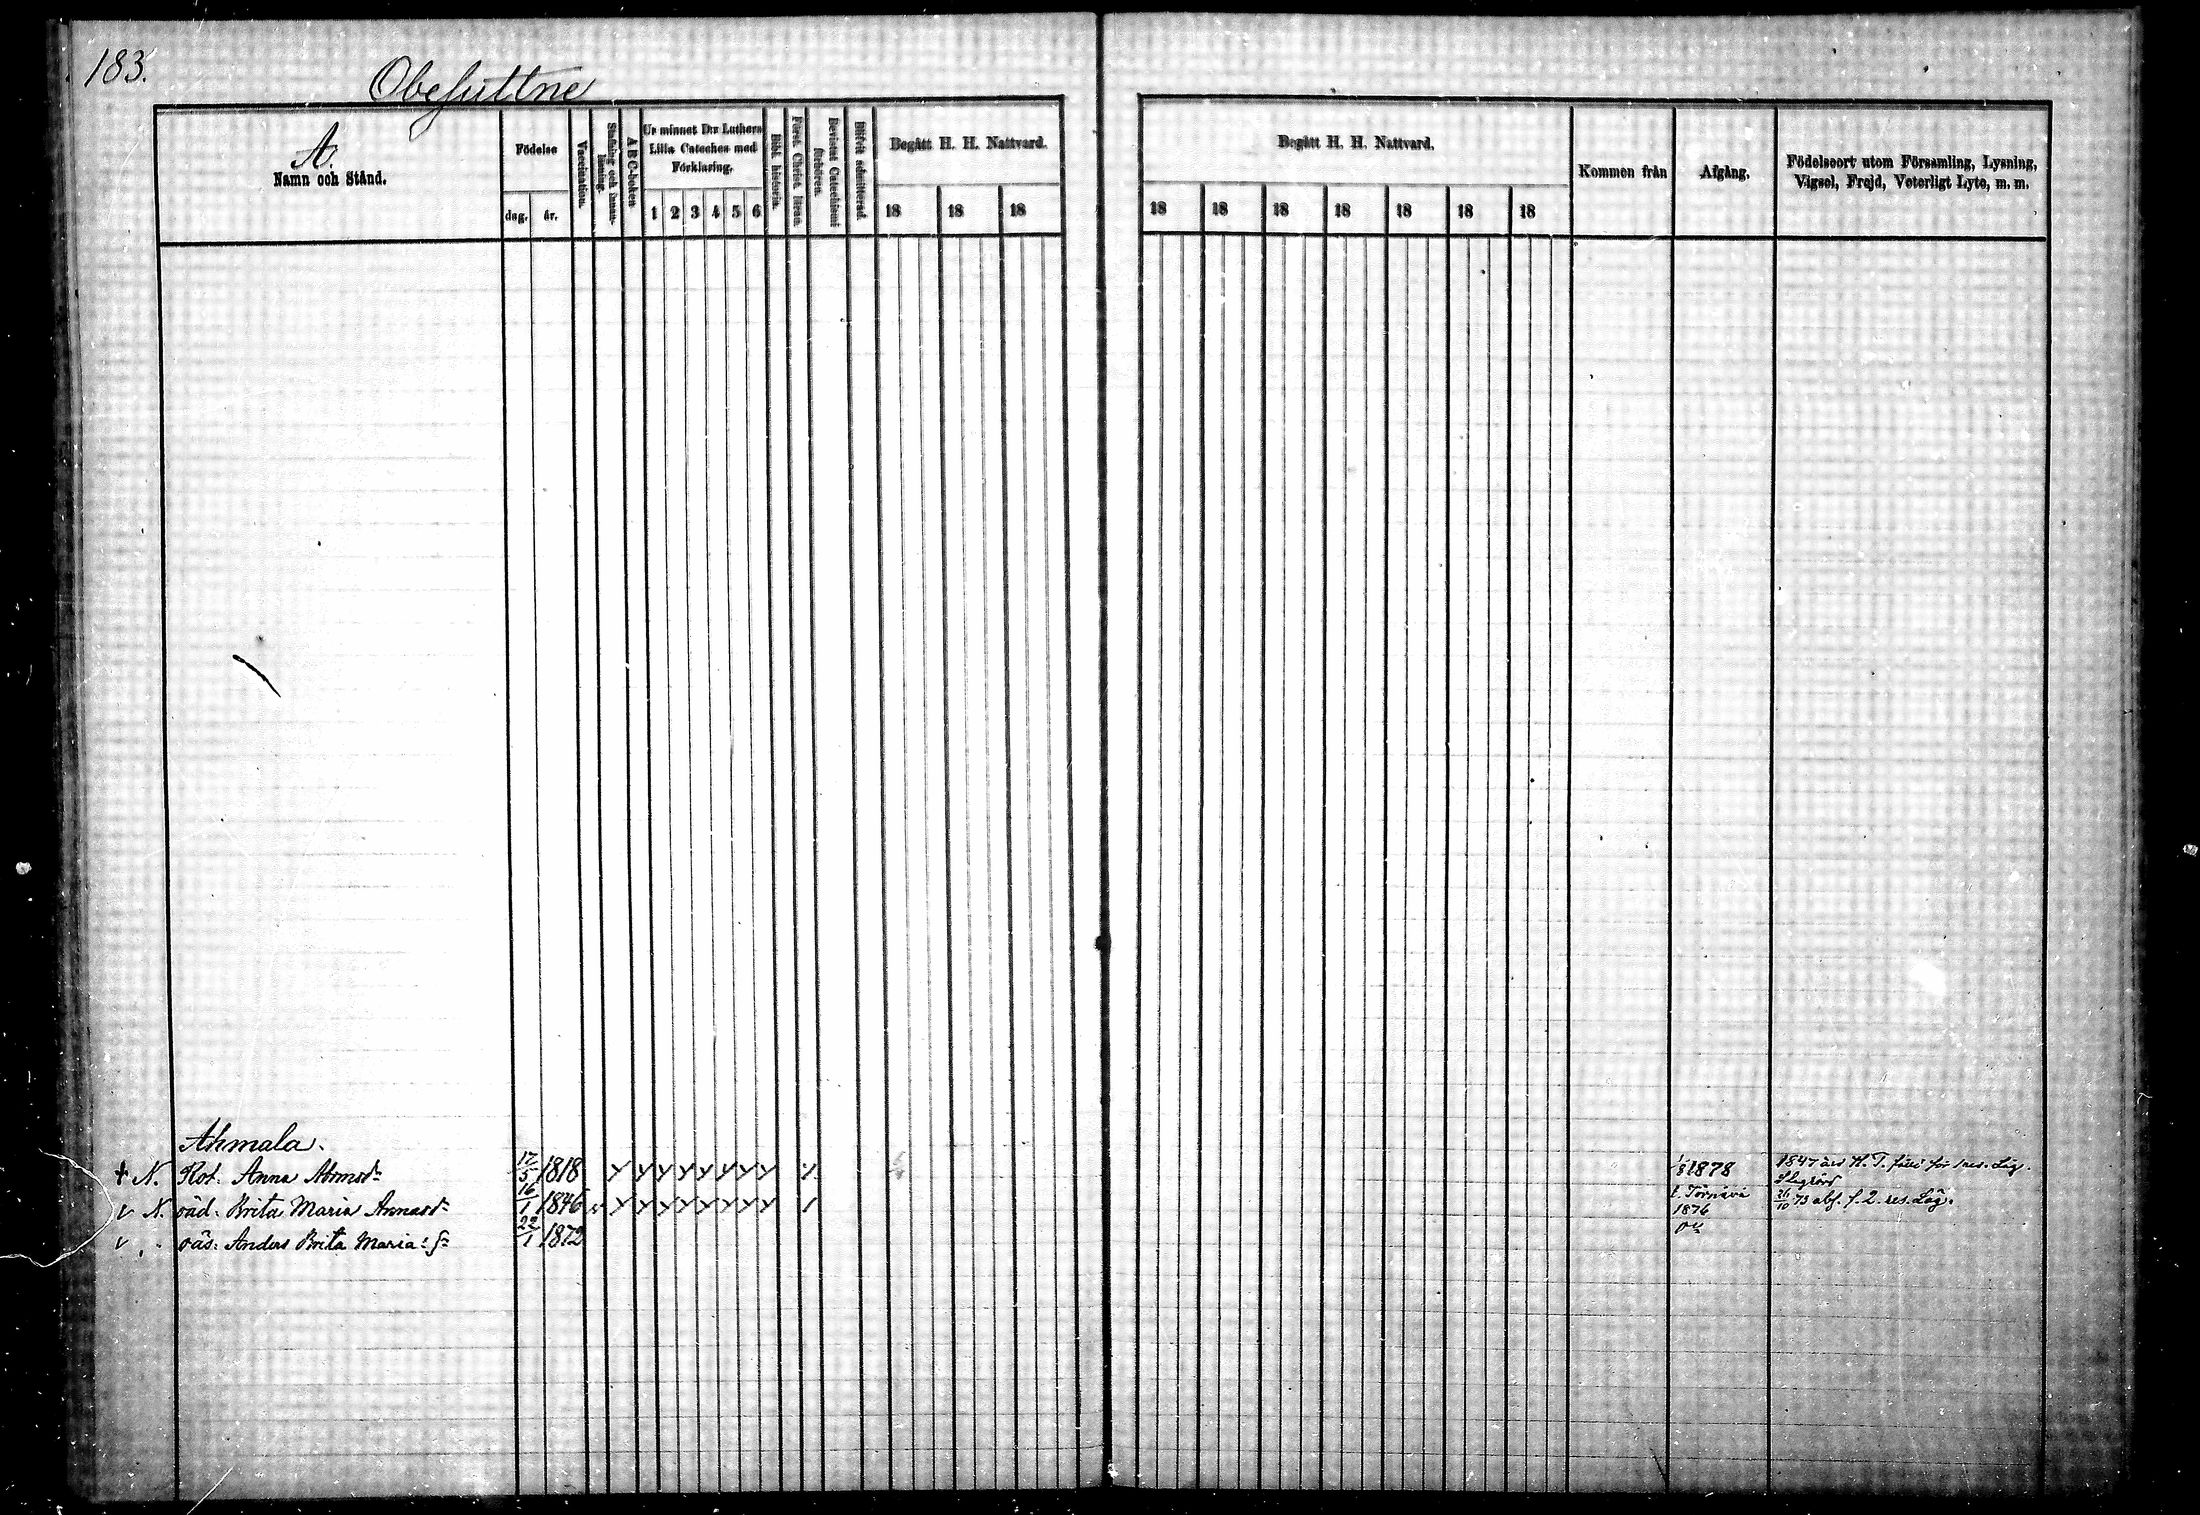 183.
Obesuttne
A.
Namn och Stånd.
Födelse
dag. år.
Vaccination.
Stafning och Innanläsning.
A B C-boken
Ur minnet D:r Luthers
Lilla Cateches med
Förklaring.
1 2 3 4 5 6
Bibl. historia.
Först. Christ. läran.
Bevistat Catechismi förhören.
Blifvit admitterad.
Begått H. H. Nattvard.
18 18 18
Begått H. H. Nattvard.
18 18 18 18 18 18 18
Kommen från
Afgång.
Födelseort utom Församling, Lysning,
Vigsel, Frejd, Veterligt Lyte, m. m.
Ahmala.
+ N. Rot. Anna 17/5 1818 1878 1847 H. T.
v N. oäd. Brita Maria Annasdr 16/1 1846 t. Törnävä 1876 26/10 73 abs. f. 2. res. Läg.
v oäs. Anders Brita Maria 22/1 1872